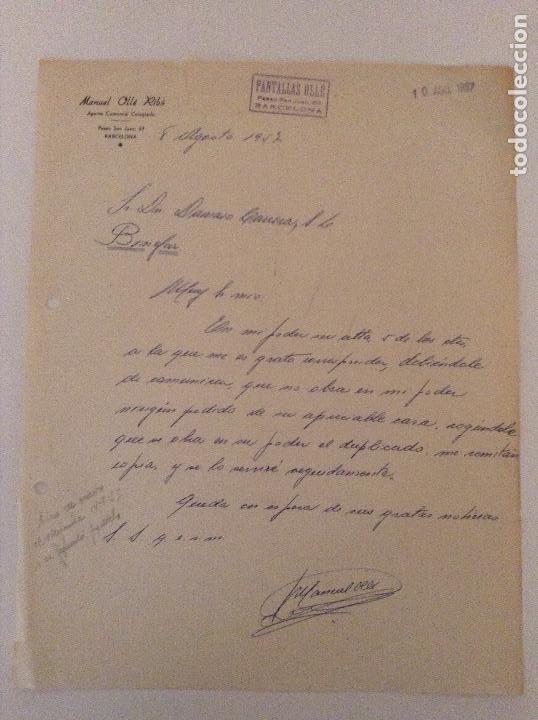 Manuel Ollé Ribó
Agente Comercial Colegiado
Paseo San Juan, 87
BARCELONA
PANTALLAS OLLÉ
Paseo San Juan, 87
BARCELONA
10 1957
8 Agosto 1957
Sr. Dn. Damaso
Binefar
Muy S. mio:
mi poder su atta 5 de los ctes,
a la que me es grato corresponder, debiéndole
de comunicar, que no obra en mi poder
ningún pedido de su apreciable casa, rogandole
que si obra en su poder el duplicado, me remitan
copia, y se lo serviré seguidamente.
Queda en espera de sus gratas noticias
S. S. q. e. s. m.
Manuel Ollé
todocoleccion